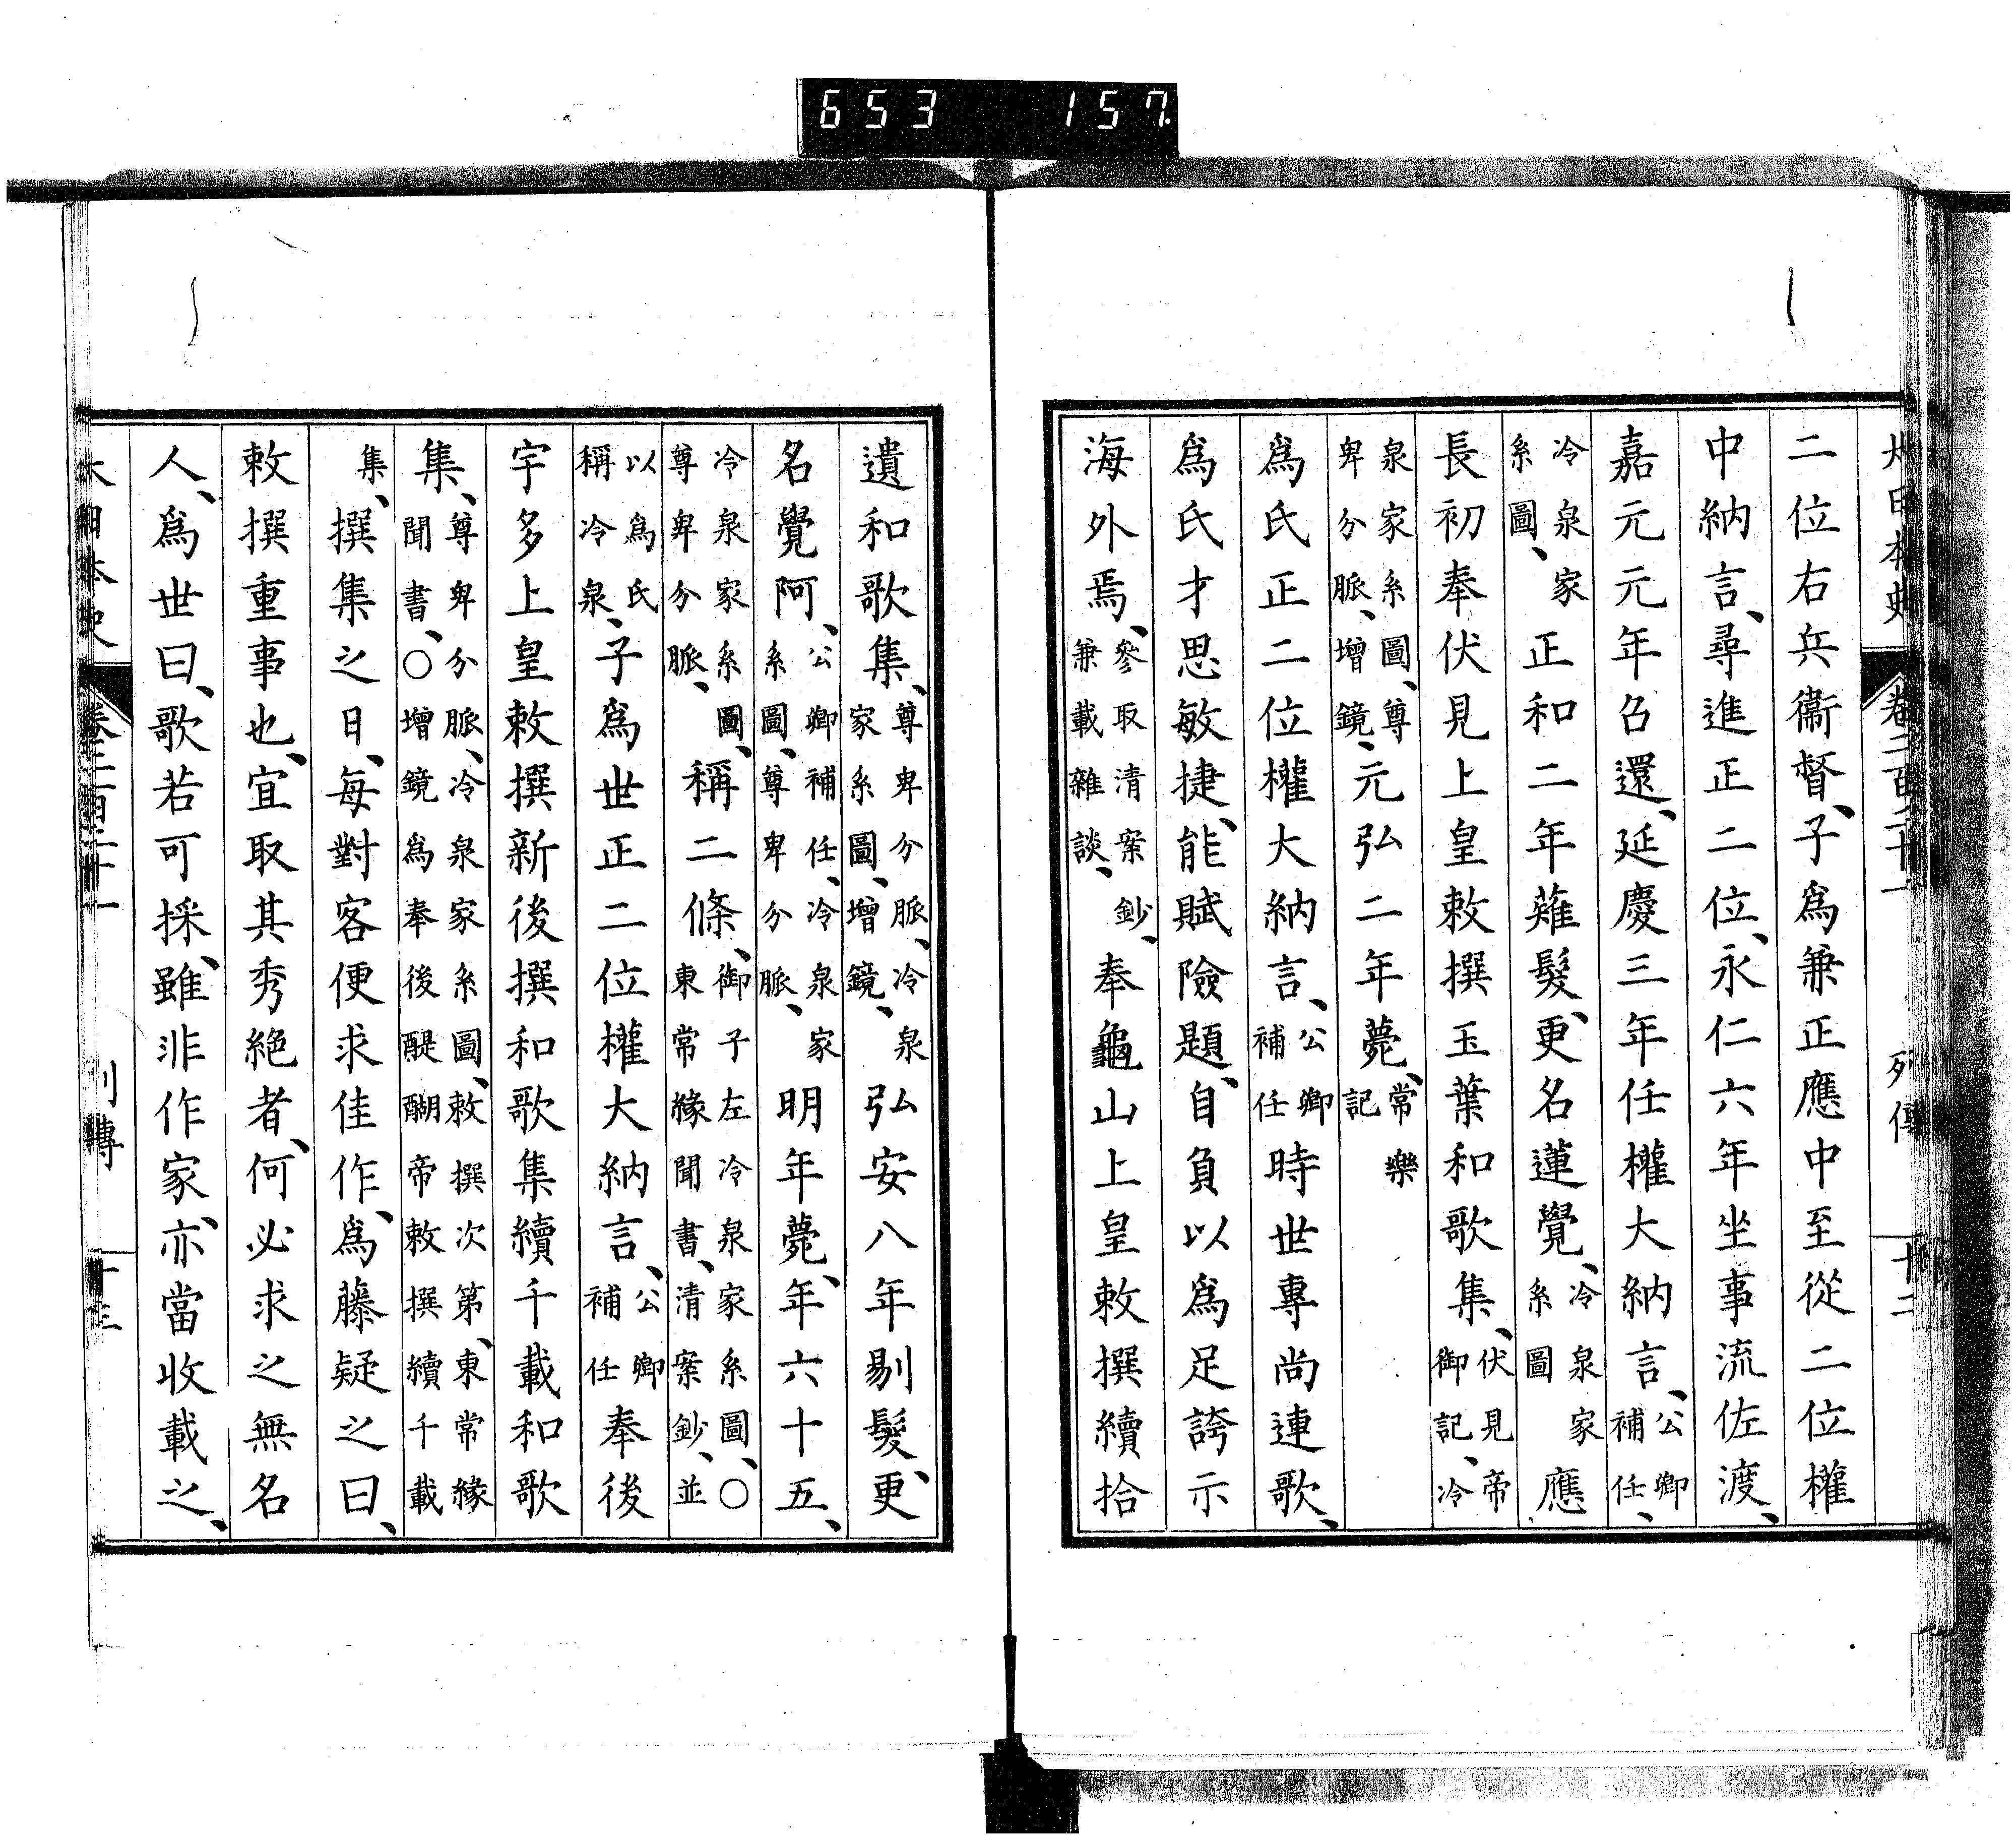 653 157.
大日本史 卷二百二十一 列傳 十二
二位右兵衞督、子爲兼正應中至從二位權
中納言、尋進正二位、永仁六年坐事流佐渡、
嘉元元年召還、延慶三年任權大納言、公卿補任、
冷泉家系圖、正和二年薙髮、更名蓮覺、冷泉家系圖應
長初奉伏見上皇敕撰玉葉和歌集、伏見帝御記、冷
泉家系圖、尊卑分脈、增鏡、元弘二年薨、常樂記
爲氏正二位權大納言、公卿補任時世專尚連歌、
爲氏才思敏捷、能賦險題、自負以爲足誇示
海外焉、參取清案鈔、兼載雜談、奉龜山上皇敕撰續拾
遺和歌集、尊卑分脈、冷泉家系圖、增鏡、弘安八年剔髮、更
名覺阿、公卿補任、冷泉家系圖、尊卑分脈、明年薨、年六十五、
冷泉家系圖、尊卑分脈、稱二條、御子左冷泉家系圖、○東常緣聞書、清案鈔、並
以爲氏稱冷泉、子爲世正二位權大納言、公卿補任奉後
宇多上皇敕撰新後撰和歌集續千載和歌
集、尊卑分脈、冷泉家系圖、敕撰次第、東常緣聞書、○增鏡爲奉後醍醐帝敕撰續千載
集、撰集之日、每對客便求佳作、爲藤疑之曰、
敕撰重事也、宜取其秀絕者、何必求之無名
人、爲世曰、歌若可採、雖非作家、亦當收載之、
大日本史 卷二百二十一 列傳 十三